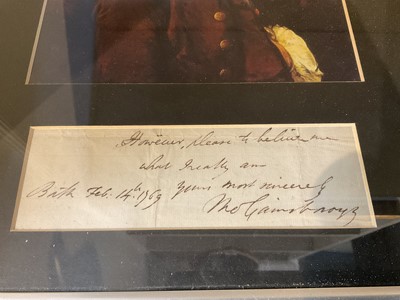 However, please to believe me
what I really am
yours most sincerely
Bath Feb. 14th 1769
Tho Gainsborough